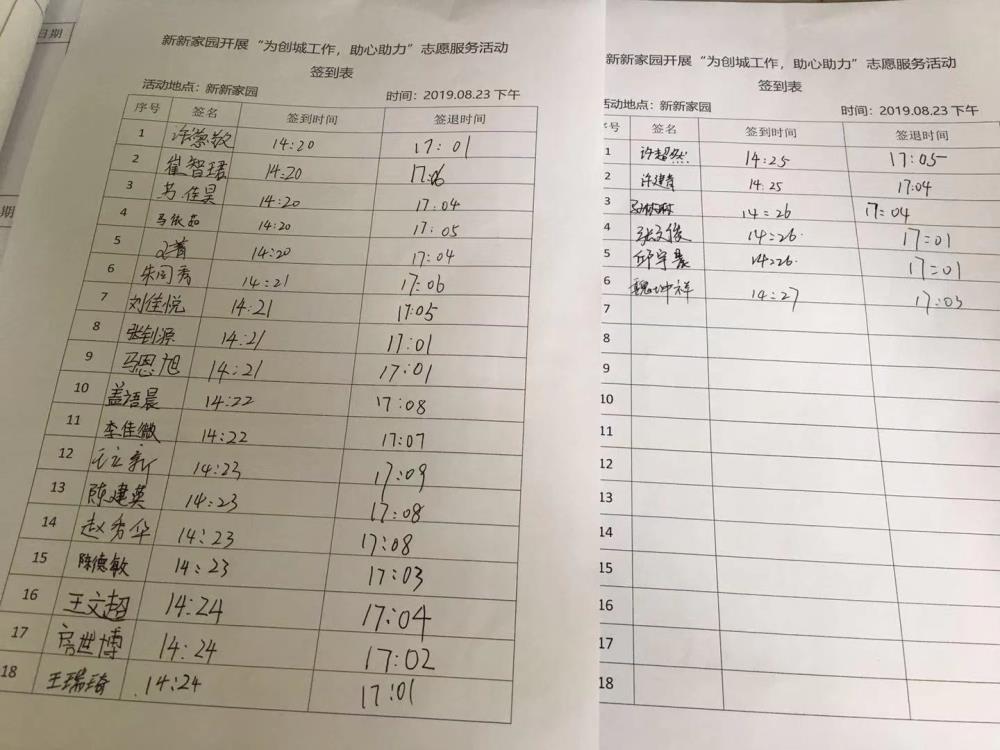 日期
期
新新家园开展“为创城工作，助心助力”志愿服务活动
签到表
活动地点：新新家园 时间：2019.08.23 下午
序号 签名 签到时间 签退时间
1 14:20 17:01
2 崔智珺 14:20 17:06
3 马佳昊 14:20 17:04
4 马依茹 14:20 17:05
5 14:20 17:04
6 朱同秀 14:21 17:06
7 刘佳悦 14:21 17:05
8 张钊源 14:21 17:01
9 马恩旭 14:21 17:01
10 盖语晨 14:22 17:08
11 李佳微 14:22 17:07
12 14:23 17:09
13 陈建英 14:23 17:08
14 赵秀华 14:23 17:08
15 陈德敏 14:23 17:03
16 王文超 14:24 17:04
17 高世博 14:24 17:02
18 王瑞琦 14:24 17:01
新新家园开展“为创城工作，助心助力”志愿服务活动
签到表
活动地点：新新家园 时间：2019.08.23 下午
序号 签名 签到时间 签退时间
1 许超然 14:25 17:05
2 许建青 14:25 17:04
3 14:26 17:04
4 张文俊 14:26 17:01
5 邱宇晨 14:26 17:01
6 魏坤祥 14:27 17:03
7
8
9
10
11
12
13
14
15
16
17
18